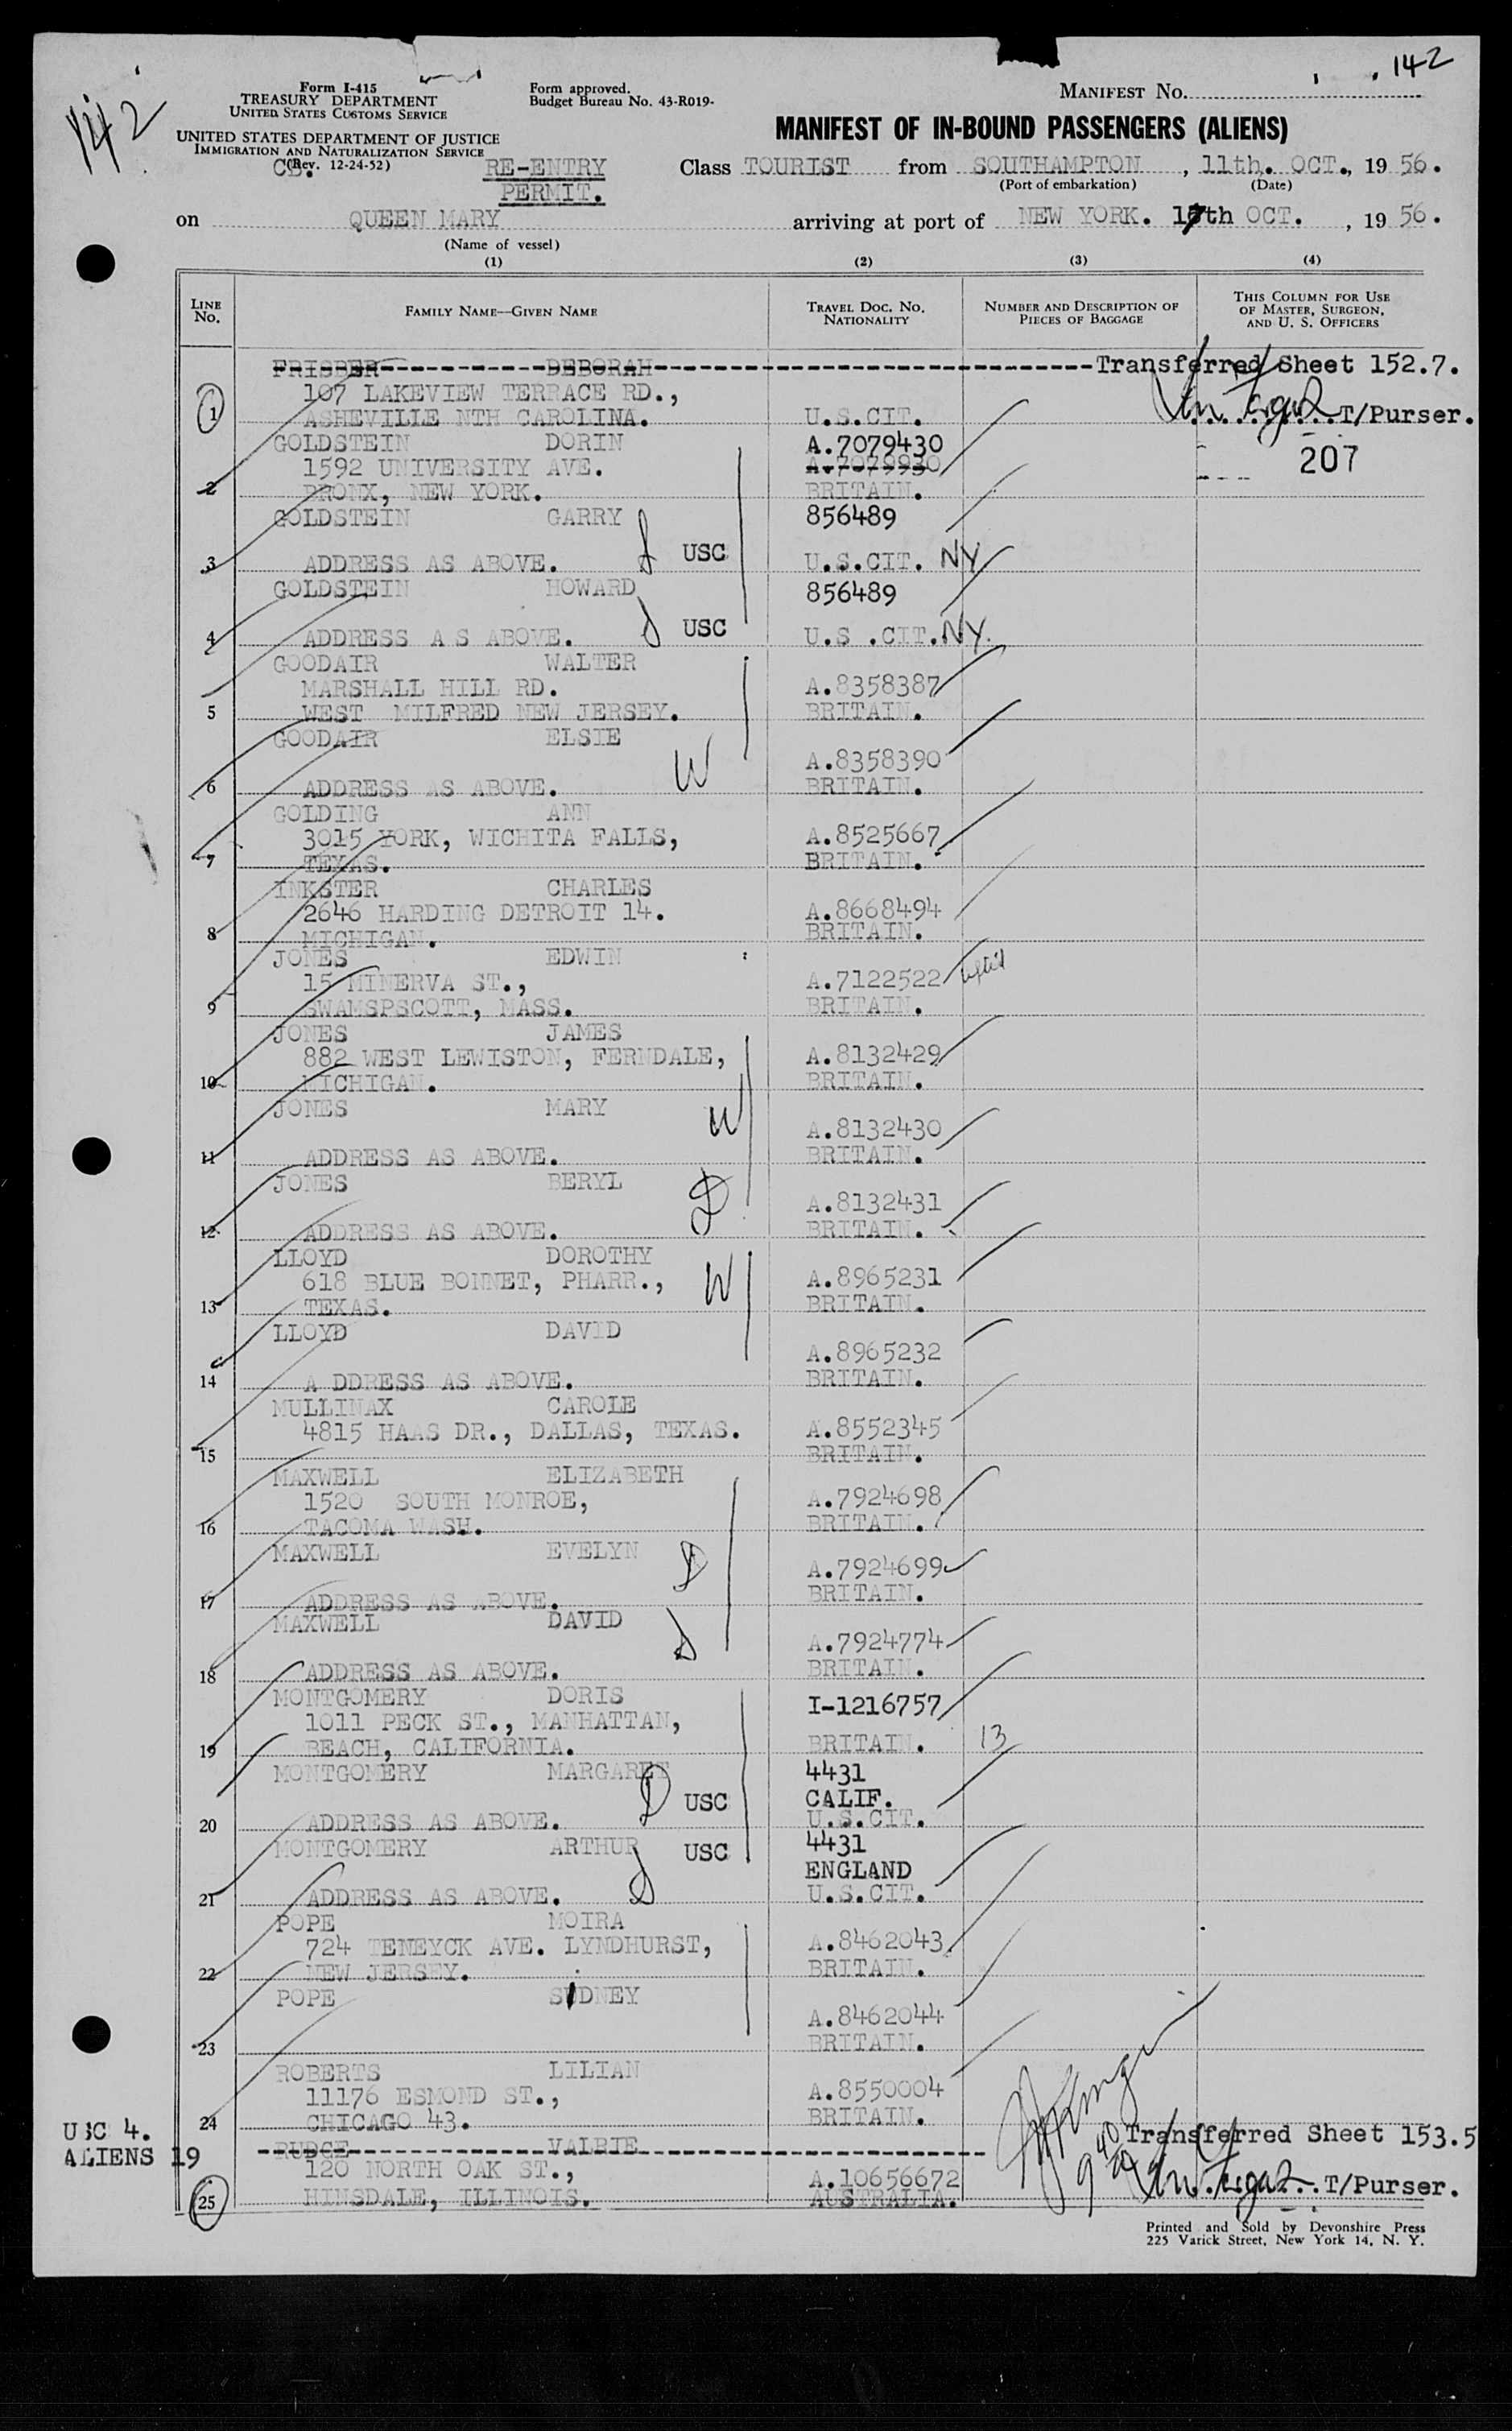 142
142
Form I-415
TREASURY DEPARTMENT
UNITED STATES CUSTOMS SERVICE
UNITED STATES DEPARTMENT OF JUSTICE
IMMIGRATION AND NATURALIZATION SERVICE
(Rev. 12-24-52)
CB.
Form approved.
Budget Bureau No. 43-R019-
MANIFEST No.
MANIFEST OF IN-BOUND PASSENGERS (ALIENS)
RE-ENTRY
PERMIT.
Class TOURIST from SOUTHAMPTON, 11th. OCT., 19 56.
(Port of embarkation) (Date)
on QUEEN MARY arriving at port of NEW YORK. 17th OCT. , 19 56.
(Name of vessel)
(1) (2) (3) (4)
LINE No. FAMILY NAME—GIVEN NAME TRAVEL DOC. No. NATIONALITY NUMBER AND DESCRIPTION OF PIECES OF BAGGAGE THIS COLUMN FOR USE OF MASTER, SURGEON, AND U. S. OFFICERS
FRISBER DEBORAH Transferred Sheet 152.7.
107 LAKEVIEW TERRACE RD.,
1 ASHEVILLE NTH CAROLINA. U.S.CIT. T/Purser.
GOLDSTEIN DORIN A.7079430
1592 UNIVERSITY AVE. A.7079930 207
2 BRONX, NEW YORK. BRITAIN.
GOLDSTEIN GARRY 856489
USC
3 ADDRESS AS ABOVE. U.S.CIT. NY
GOLDSTEIN HOWARD 856489
USC
4 ADDRESS A S ABOVE. U.S .CIT. NY.
GOODAIR WALTER
MARSHALL HILL RD. A.8358387
5 WEST MILFRED NEW JERSEY. BRITAIN.
GOODAIR ELSIE
W A.8358390
6 ADDRESS AS ABOVE. BRITAIN.
GOLDING ANN
3015 YORK, WICHITA FALLS, A.8525667
7 TEXAS. BRITAIN.
INKSTER CHARLES
2646 HARDING DETROIT 14. A.8668494
8 MICHIGAN. BRITAIN.
JONES EDWIN
15 MINERVA ST., A.7122522
9 SWAMSPSCOTT, MASS. BRITAIN.
JONES JAMES
882 WEST LEWISTON, FERNDALE, A.8132429
10 MICHIGAN. BRITAIN.
JONES MARY
W A.8132430
11 ADDRESS AS ABOVE. BRITAIN.
JONES BERYL
D A.8132431
12 ADDRESS AS ABOVE. BRITAIN.
LLOYD DOROTHY
618 BLUE BONNET, PHARR., W A.8965231
13 TEXAS. BRITAIN.
LLOYD DAVID
A.8965232
14 A DDRESS AS ABOVE. BRITAIN.
MULLINAX CAROLE
4815 HAAS DR., DALLAS, TEXAS. A.8552345
15 BRITAIN.
MAXWELL ELIZABETH
1520 SOUTH MONROE, A.7924698
16 TACOMA WASH. BRITAIN.
MAXWELL EVELYN
D A.7924699
17 ADDRESS AS ABOVE. BRITAIN.
MAXWELL DAVID
A.7924774
18 ADDRESS AS ABOVE. BRITAIN.
MONTGOMERY DORIS I-1216757
1011 PECK ST., MANHATTAN,
19 BEACH, CALIFORNIA. BRITAIN. 13
MONTGOMERY MARGARET 4431
D USC CALIF.
20 ADDRESS AS ABOVE. U.S.CIT.
MONTGOMERY ARTHUR USC 4431
ENGLAND
21 ADDRESS AS ABOVE. U.S.CIT.
POPE MOIRA
724 TENEYCK AVE. LYNDHURST, A.8462043
22 NEW JERSEY. BRITAIN.
POPE SIDNEY
A.8462044
23 BRITAIN.
ROBERTS LILIAN
11176 ESMOND ST., A.8550004
24 CHICAGO 43. BRITAIN.
USC 4.
ALIENS 19
RUDGE VALRIE Transferred Sheet 153.5
120 NORTH OAK ST., A.10656672
25 HINSDALE, ILLINOIS. AUSTRALIA. T/Purser.
Printed and Sold by Devonshire Press
225 Varick Street, New York 14, N. Y.